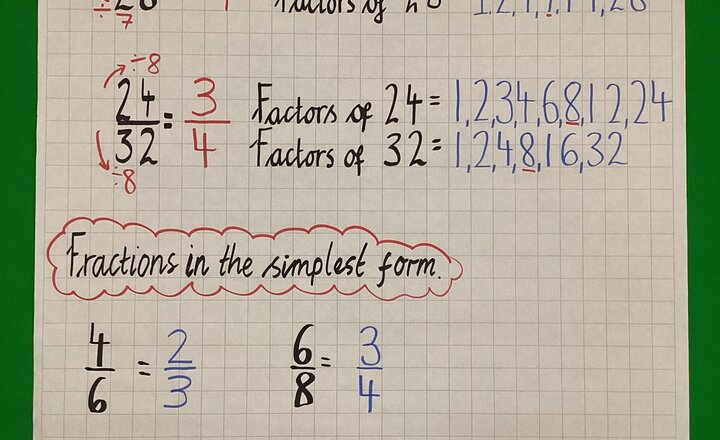 ÷7
Factors of 28 1,2,4,7,14,28
÷8
24/32 = 3/4 Factors of 24 = 1,2,3,4,6,8,12,24
Factors of 32 = 1,2,4,8,16,32
÷8
Fractions in the simplest form.
4/6 = 2/3 6/8 = 3/4